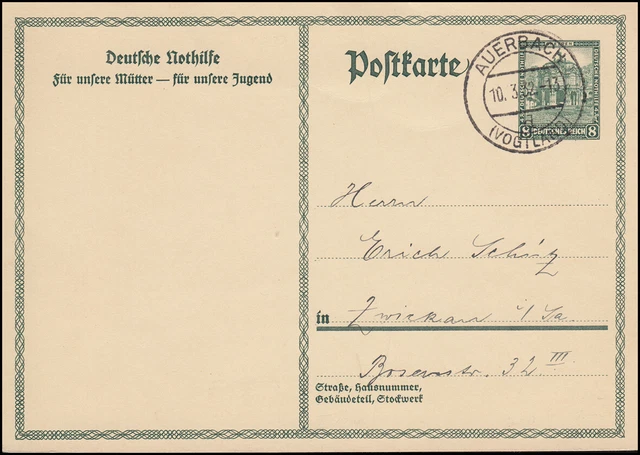 Deutsche Nothilfe
Für unsere Mütter — für unsere Jugend
Postkarte
AUERBACH
10. 3. 32. -13
(VOGTLAND)
8 DEUTSCHES REICH 8
Herrn
Erich Schütz
in Zwickau i/Sa.
Bosenstr. 32 III
Straße, Hausnummer,
Gebäudeteil, Stockwerk